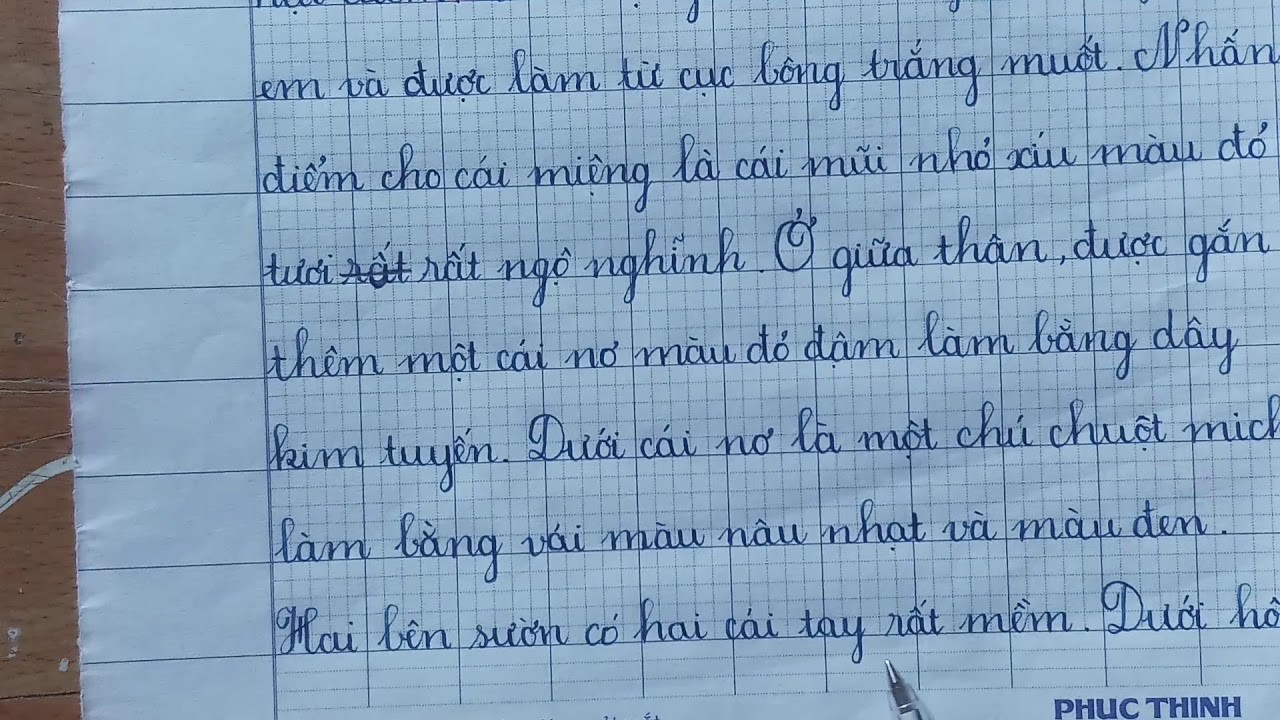 em và được làm từ cục bông trắng muốt. Nhấn
điểm cho cái miệng là cái mũi nhỏ xíu màu đỏ
tươi rất ngộ nghĩnh. Ở giữa thân, được gắn
thêm một cái nơ màu đỏ đậm làm bằng dây
kim tuyến. Dưới cái nơ là một chú chuột mick
làm bằng vải màu nâu nhạt và màu đen.
Hai bên sườn có hai cái tay rất mềm. Dưới hô
PHUC THINH